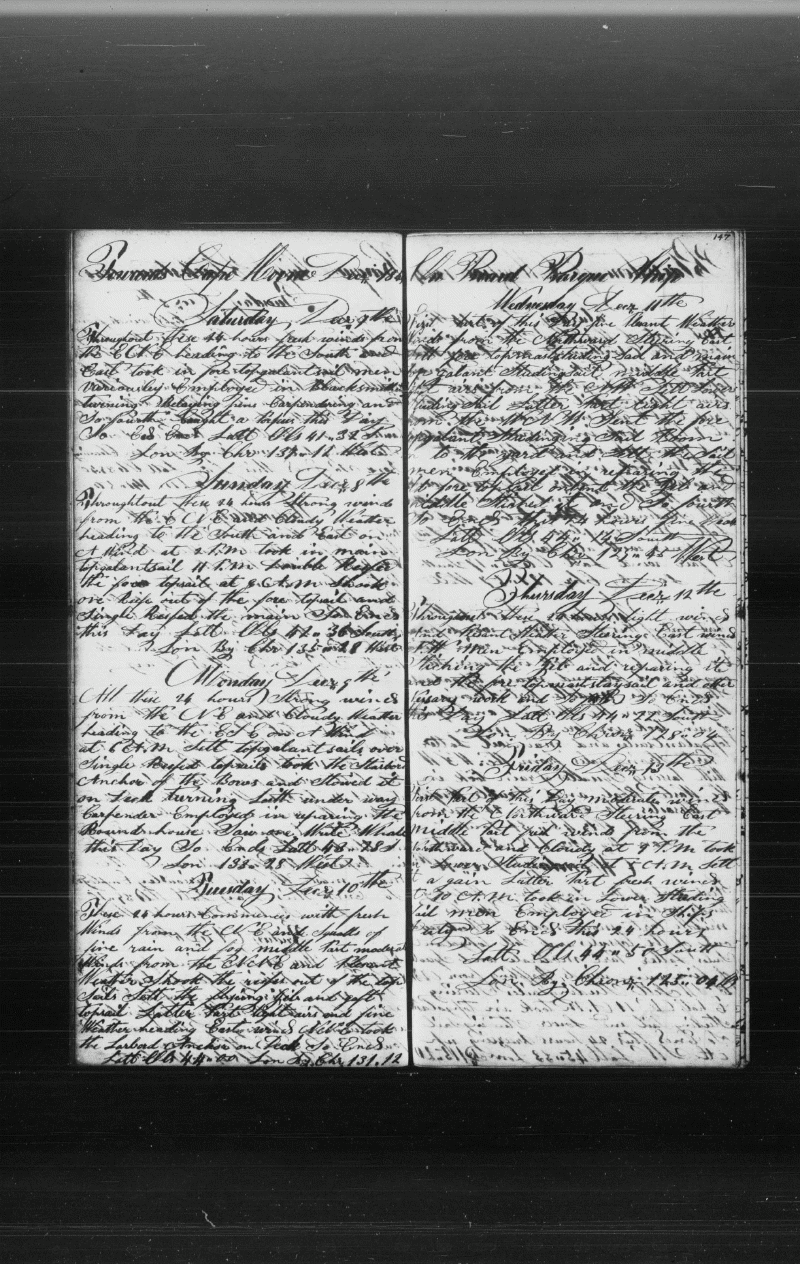 Towards Cape Horne Decz 184
Saturday Decz 7th
Throughout these 24 hours fresh winds from
the ENE heading to the South and
East took in fore topgalantsail men
variously Employed in Blacksmith
turning Belaying pins Carpendering and
So fourth Caught a porpus this Day
So Ends Latt Obs 41 " 32 South
Lon By Chr 137 " 12 West
Sunday Decz 8th
Throughtout these 24 hours Strong winds
from the ENE and Cloudy Weather
heading to the South and East on
A Wind at 2 P.M took in main
topgalantsail 11 P.M Double Reefed
the fore topsail at 8 A.M Shook
on Reefe out of the fore topsail and
Single Reefed the main So Ends
this Day Latt Obs 42 " 36 South
Lon By Chr 135 " 28 West
Monday Decz 9th
All these 24 hours Strong winds
from the NE and Cloudy Weather
heading to the ESE on A Wind
at 6 A.M Sett topgalantsails over
Single Reefed topsails took the Starbord
Anchor of the Bows and Stowed it
on Deck turning Lath under way
Carpender Employed in reparing the
Round house Saw one White Whale
this Day So Ends Latt 43 " 23 S
Lon 133 " 25 West
Tuesday Decz 10th
These 24 hours Commences with fresh
Winds from the NE and Squalls of
fine rain and fog middle Part moderate
Winds from the NNE and Pleasant
Weather Shook the reefes out of the top
Sails Sett the flying Jib and gaft
topsail Latter Part light airs and fine
Weather heading East wind NNE took
the Larbord Anchor on Deck So Ends
Latt Obs 44 " 00 Lon By Chr 131 " 12
147
On Board Barque
Wednesday Decz 11th
first Part of this Day fine Pleasant Weather
Winds from the Northward Steering East
Sett fore topmaststudingsail and main
topgalant Studingsail middle Part
light airs from the Sett Lower
Studingsail Latter Part light airs
from the WNW. Sent the fore
topgalant Studinging Sail Boom
to the yard and Sett the Sail
men Employed in repairing the
fore topsail and the Jib and
So fourth
So Ends these 24 hours fine
Latt Obs 44 " 12 South
Lon By Chr 129 " 45 West
Thursday Decz 12th
Throughout these 24 hours light winds
and Pleasant Weather Steering East wind
N.W. Men Employed in
the Jib and repairing it
and the fore topmaststaysail and other
nessary work and So fourth So Ends
this Day Latt Obs 44 " 22 South
Lon By Chron 128 " 04
Friday Decz 13th
first Part of this Day moderate winds
from the Northward Steering East
middle Part fresh winds from the
Northward and Cloudy at 9 P.M took
in Lower Studingsail at A.M Sett
it again Latter Part fresh winds
at 10 A.M. took in Lower Studing
Sail men Employed in Ships
Duty So Ends this 24 hours
Latt Obs 44 " 50 South
Lon By Chron 125 " 04 W